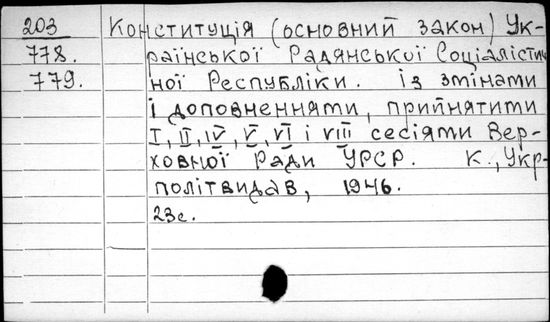 203 Конституція (основний закон) Ук-
778. раїнської Радянської Соціалістич
779. ної Республіки. із змінами
і доповненнями, прийнятими
I, II, IV, V, VI і VIII сесіями Вер-
ховної Ради УРСР. К., Укр-
політвидав, 1946.
23с.